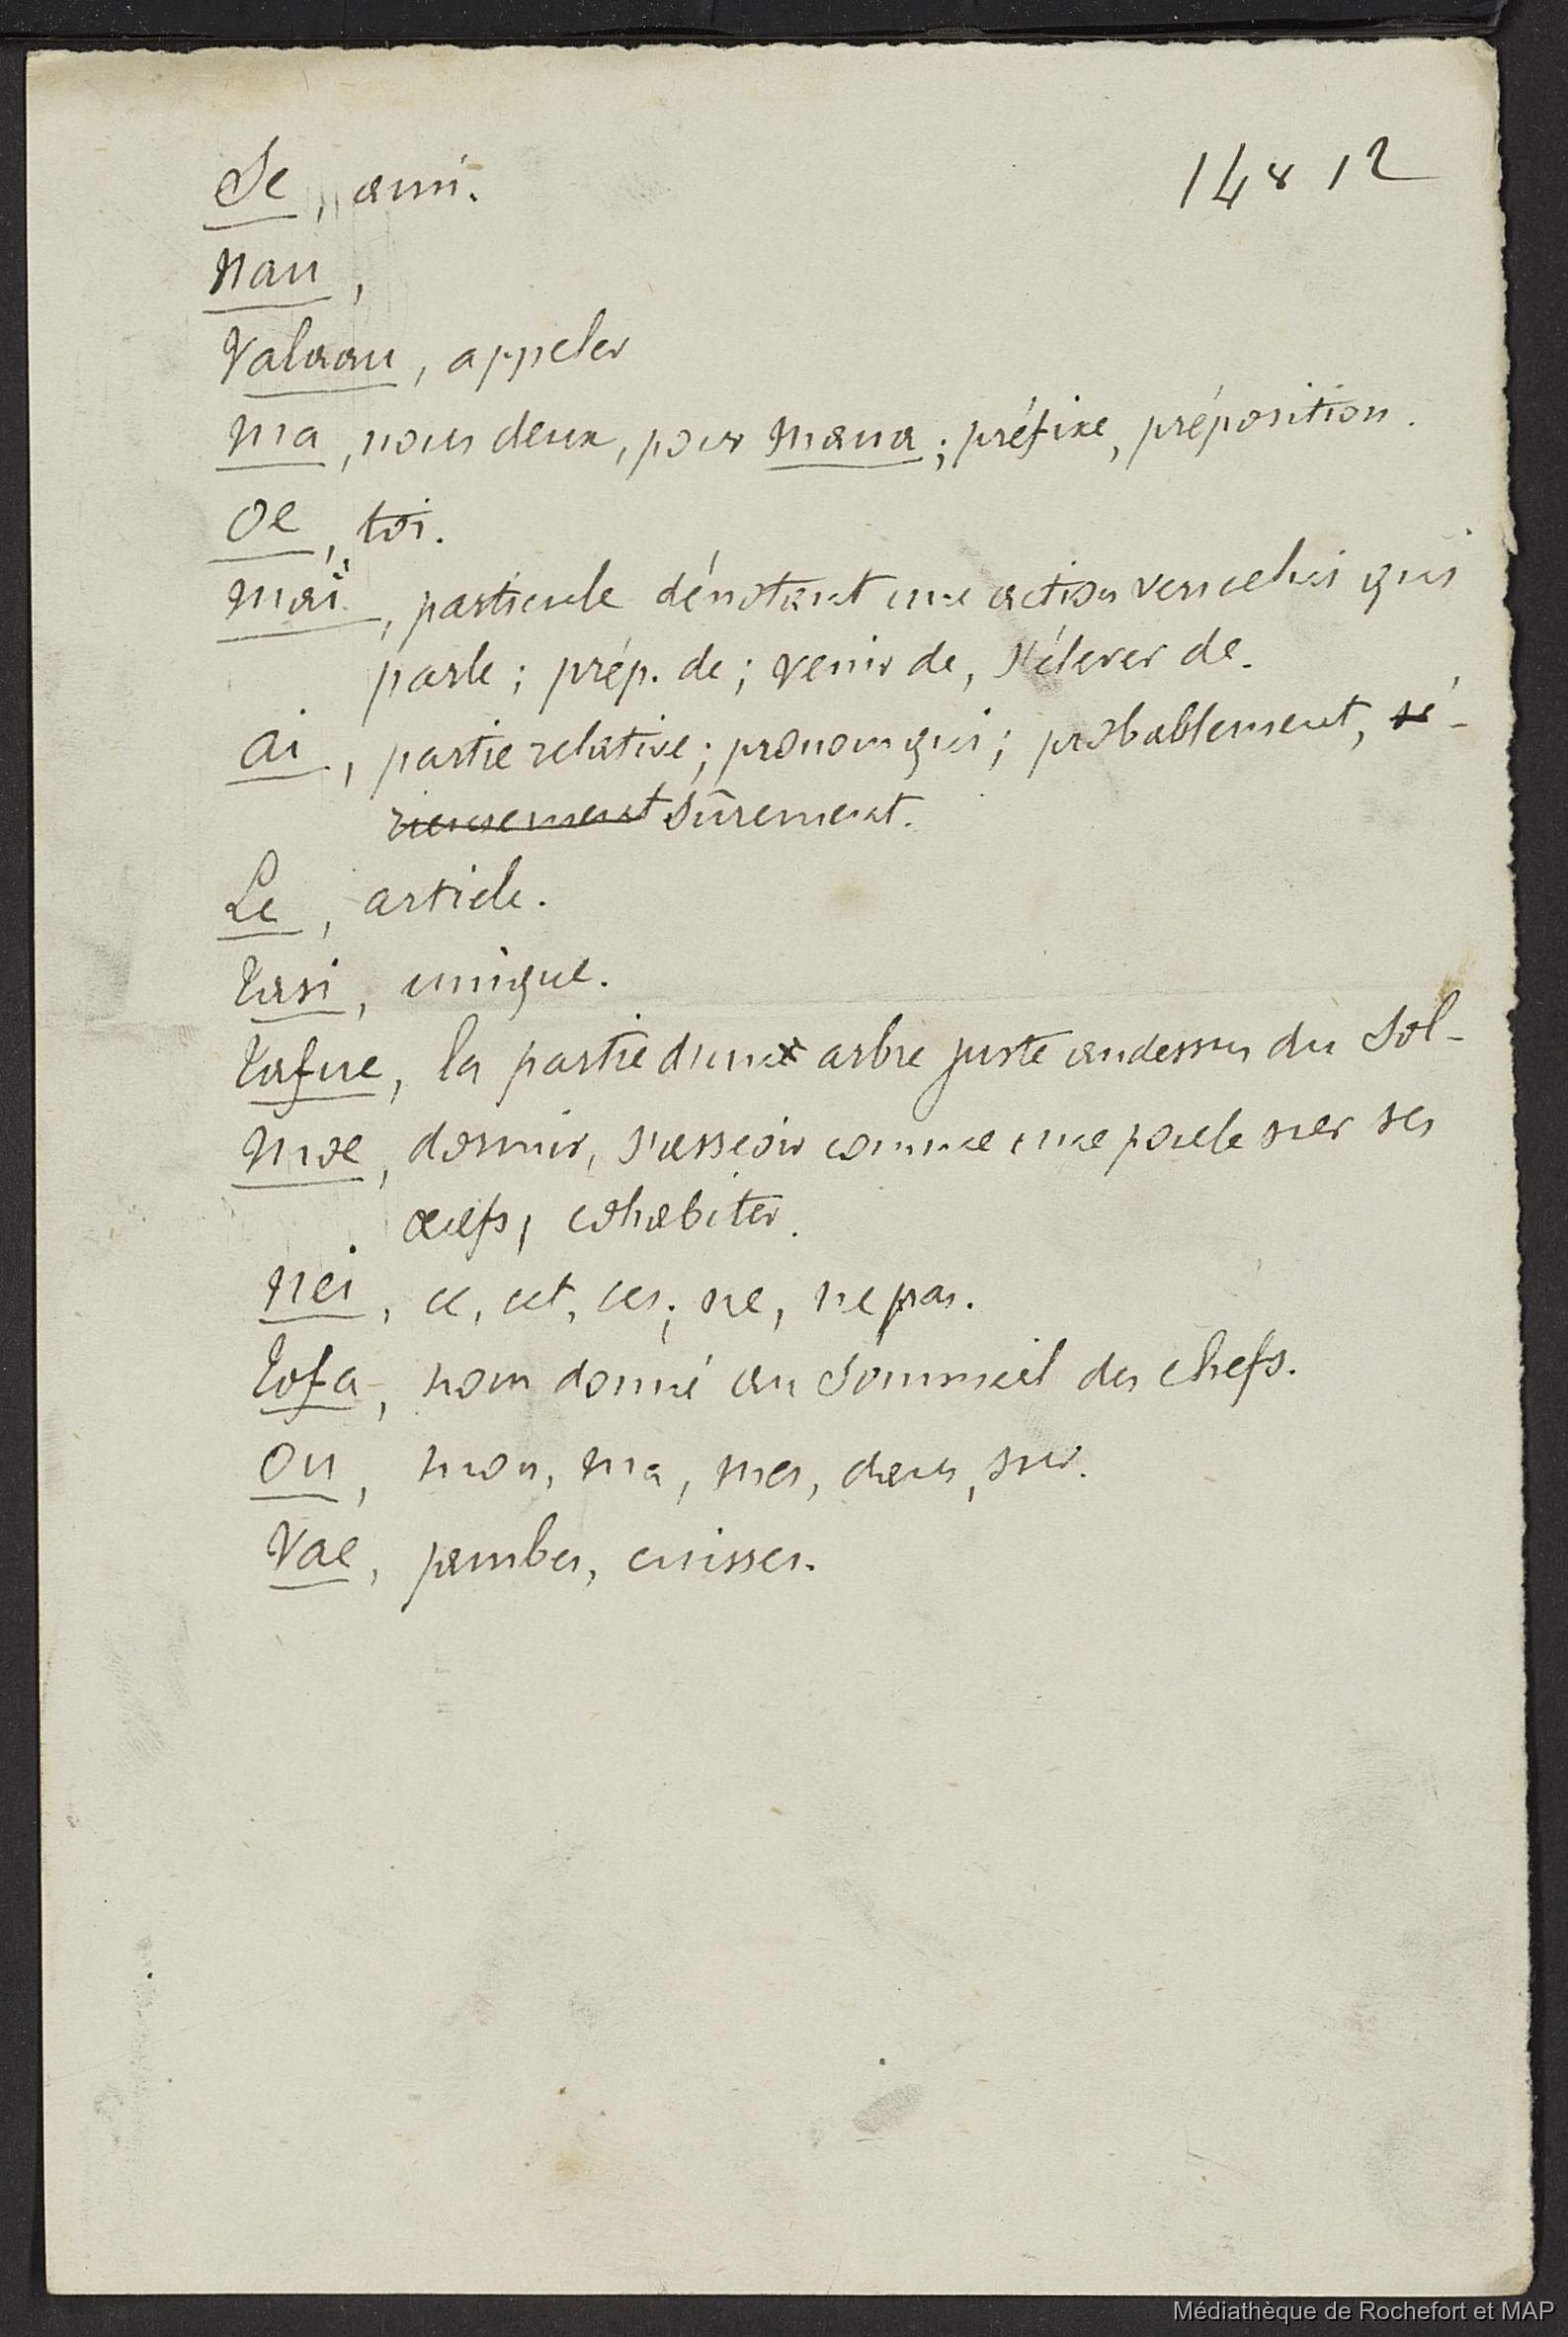 Se, ami.
14812
Nau,
Valaau, appeler
Ma, nous deux, pour Maua; préfixe, préposition.
Oe, toi.
Mai, particule dénotant une action vers celui qui
parle; prép. de; venir de, s'élever de.
Ai, partie relative; pronom qui; probablement, sé-
rieusement sûrement.
Le, article.
Tasi, unique.
Tafue, la partie d'une arbre juste au dessus du sol-
Moe, dormir, s'asseoir comme une poule sur ses
œufs, cohabiter.
Nei, ce, cet, ces; ne, ne pas.
Tofa, nom donné au sommeil des chefs.
Ou, mon, ma, mes, dans, sur.
Vae, jambes, cuisses.
Médiathèque de Rochefort et MAP